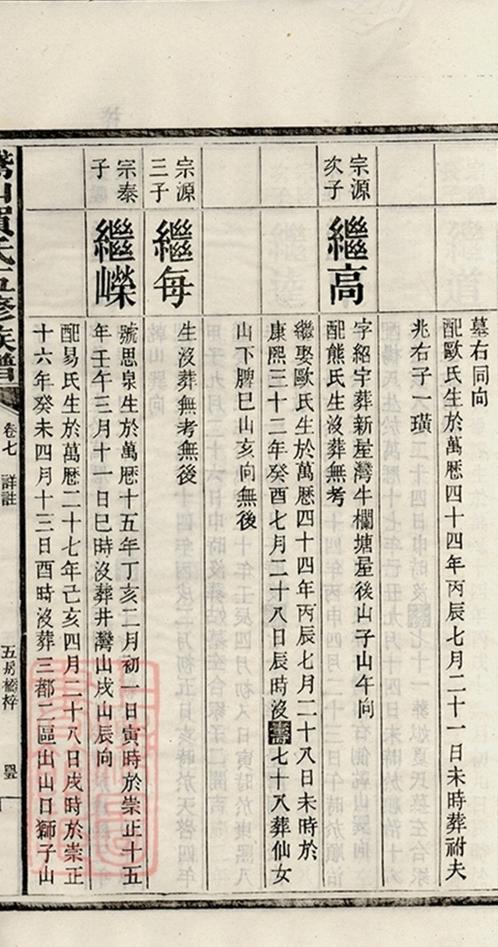 墓右同向
配歐氏生於萬歷四十四年丙辰七月二十一日未時葬祔夫
兆右子一璜
宗源次子
繼高
字紹宇葬新屋灣牛欄塘屋後山子山午向
配熊氏生沒葬無考
繼娶歐氏生於萬歷四十四年丙辰七月二十八日未時於
康熙三十二年癸酉七月二十八日辰時沒壽七十八葬仙女
山下脾巳山亥向無後
宗源三子
繼每
生沒葬無考無後
宗泰子
繼嶸
號思泉生於萬歷十五年丁亥二月初一日寅時於崇正十五
年壬午三月十一日巳時沒葬井灣山戌山辰向
配易氏生於萬歷二十七年己亥四月二十八日戌時於崇正
十六年癸未四月十三日酉時沒葬三都二區出山口獅子山
氏五修族譜
卷七
詳註
五房橋梓